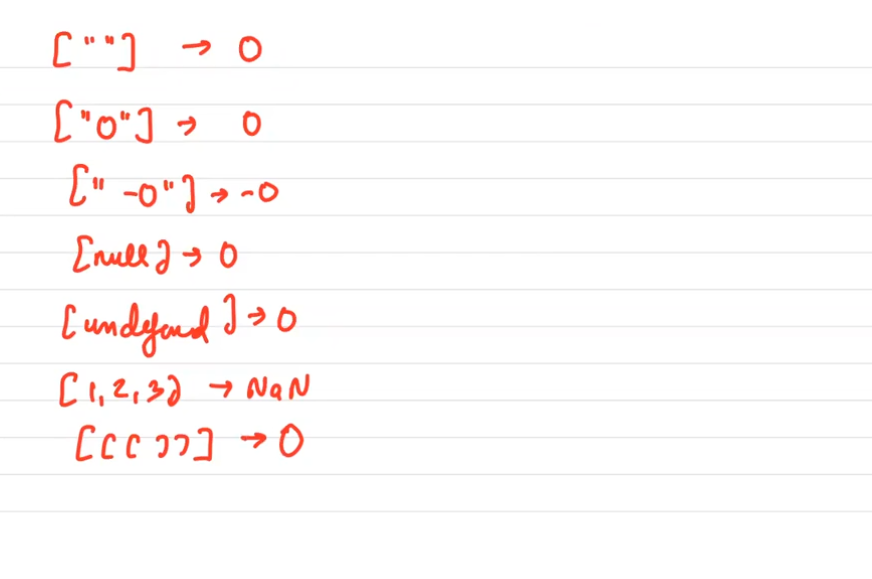 [""] → 0
["0"] → 0
["-0"] → -0
[null] → 0
[undefined] → 0
[1,2,3] → NaN
[[[]]] → 0